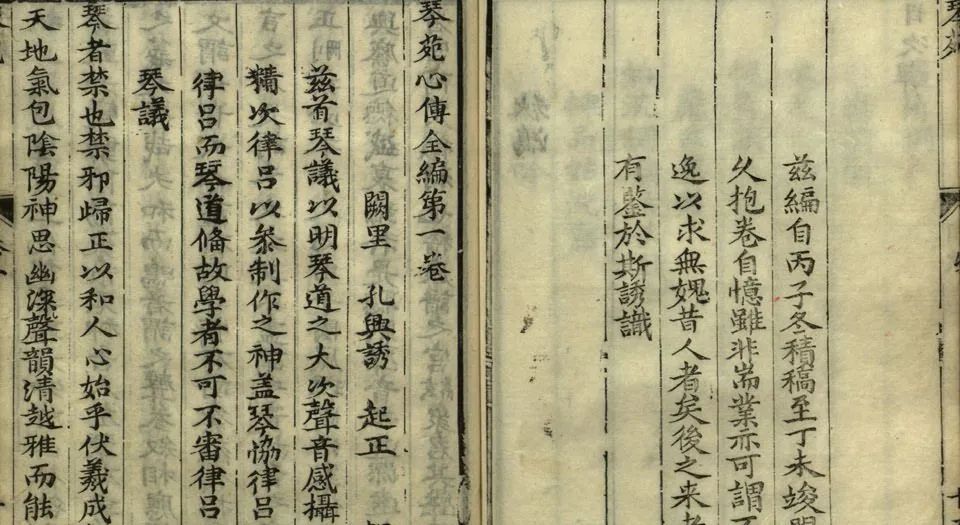 琴苑
茲編自丙子冬積稿至丁未竣
久抱卷自憶雖非耑業亦可謂
逸以求無媿昔人者矣後之来者
有鑒於斯誘識
琴苑心傳全編第一卷
闕里 孔興誘 起正
茲首琴議以明琴道之大次聲音感攝
精次律呂以叅制作之神盖琴恊律呂
律呂而琴道俻故學者不可不審律呂
琴議
琴者禁也禁邪歸正以和人心始乎伏羲成
天地氣包陰陽神思幽深聲韻清越雅而能